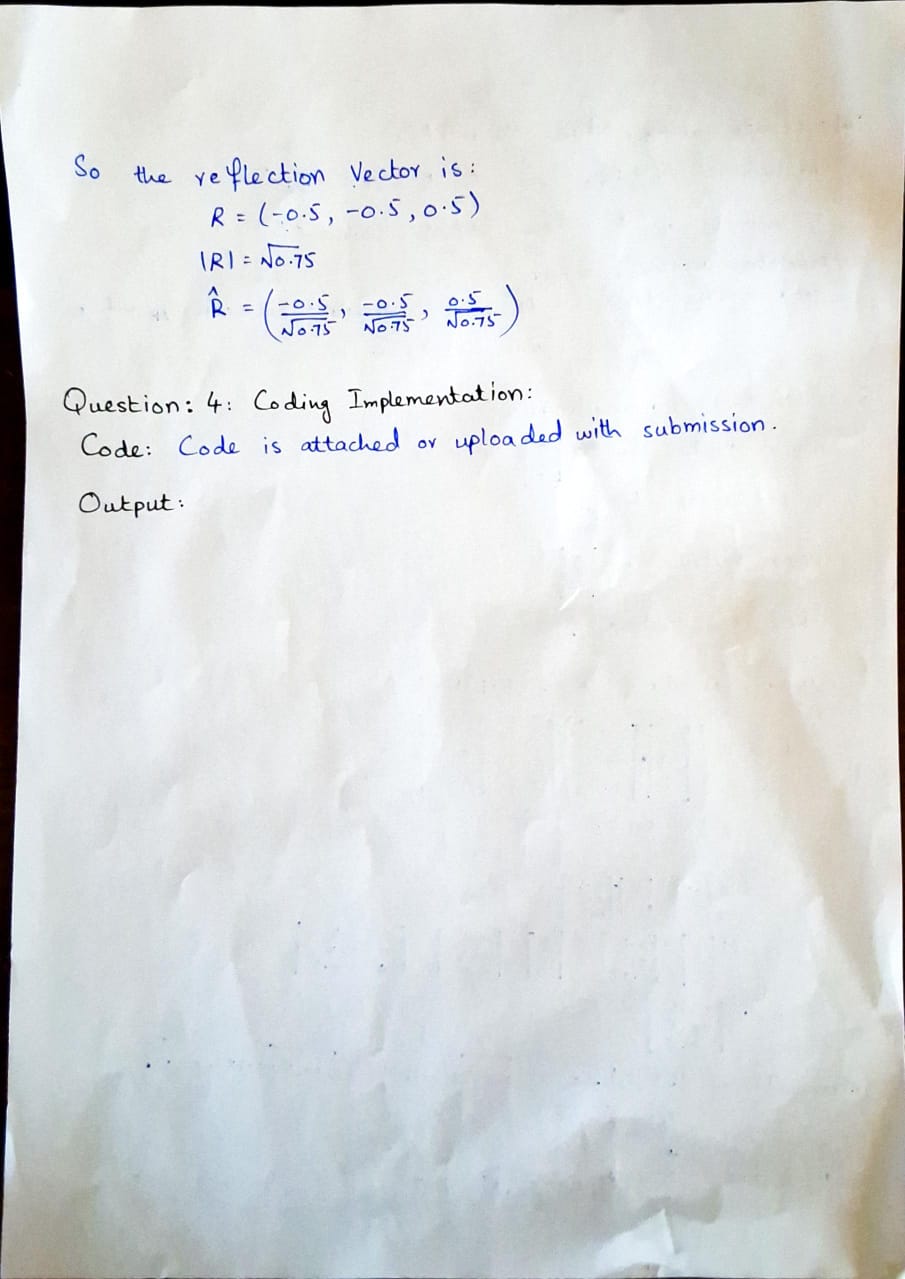 So the reflection Vector is:
R = (-0.5, -0.5, 0.5)
|R| = √0.75
R̂ = (-0.5/√0.75, -0.5/√0.75, 0.5/√0.75)
Question: 4: Coding Implementation:
Code: Code is attached or uploaded with submission.
Output: